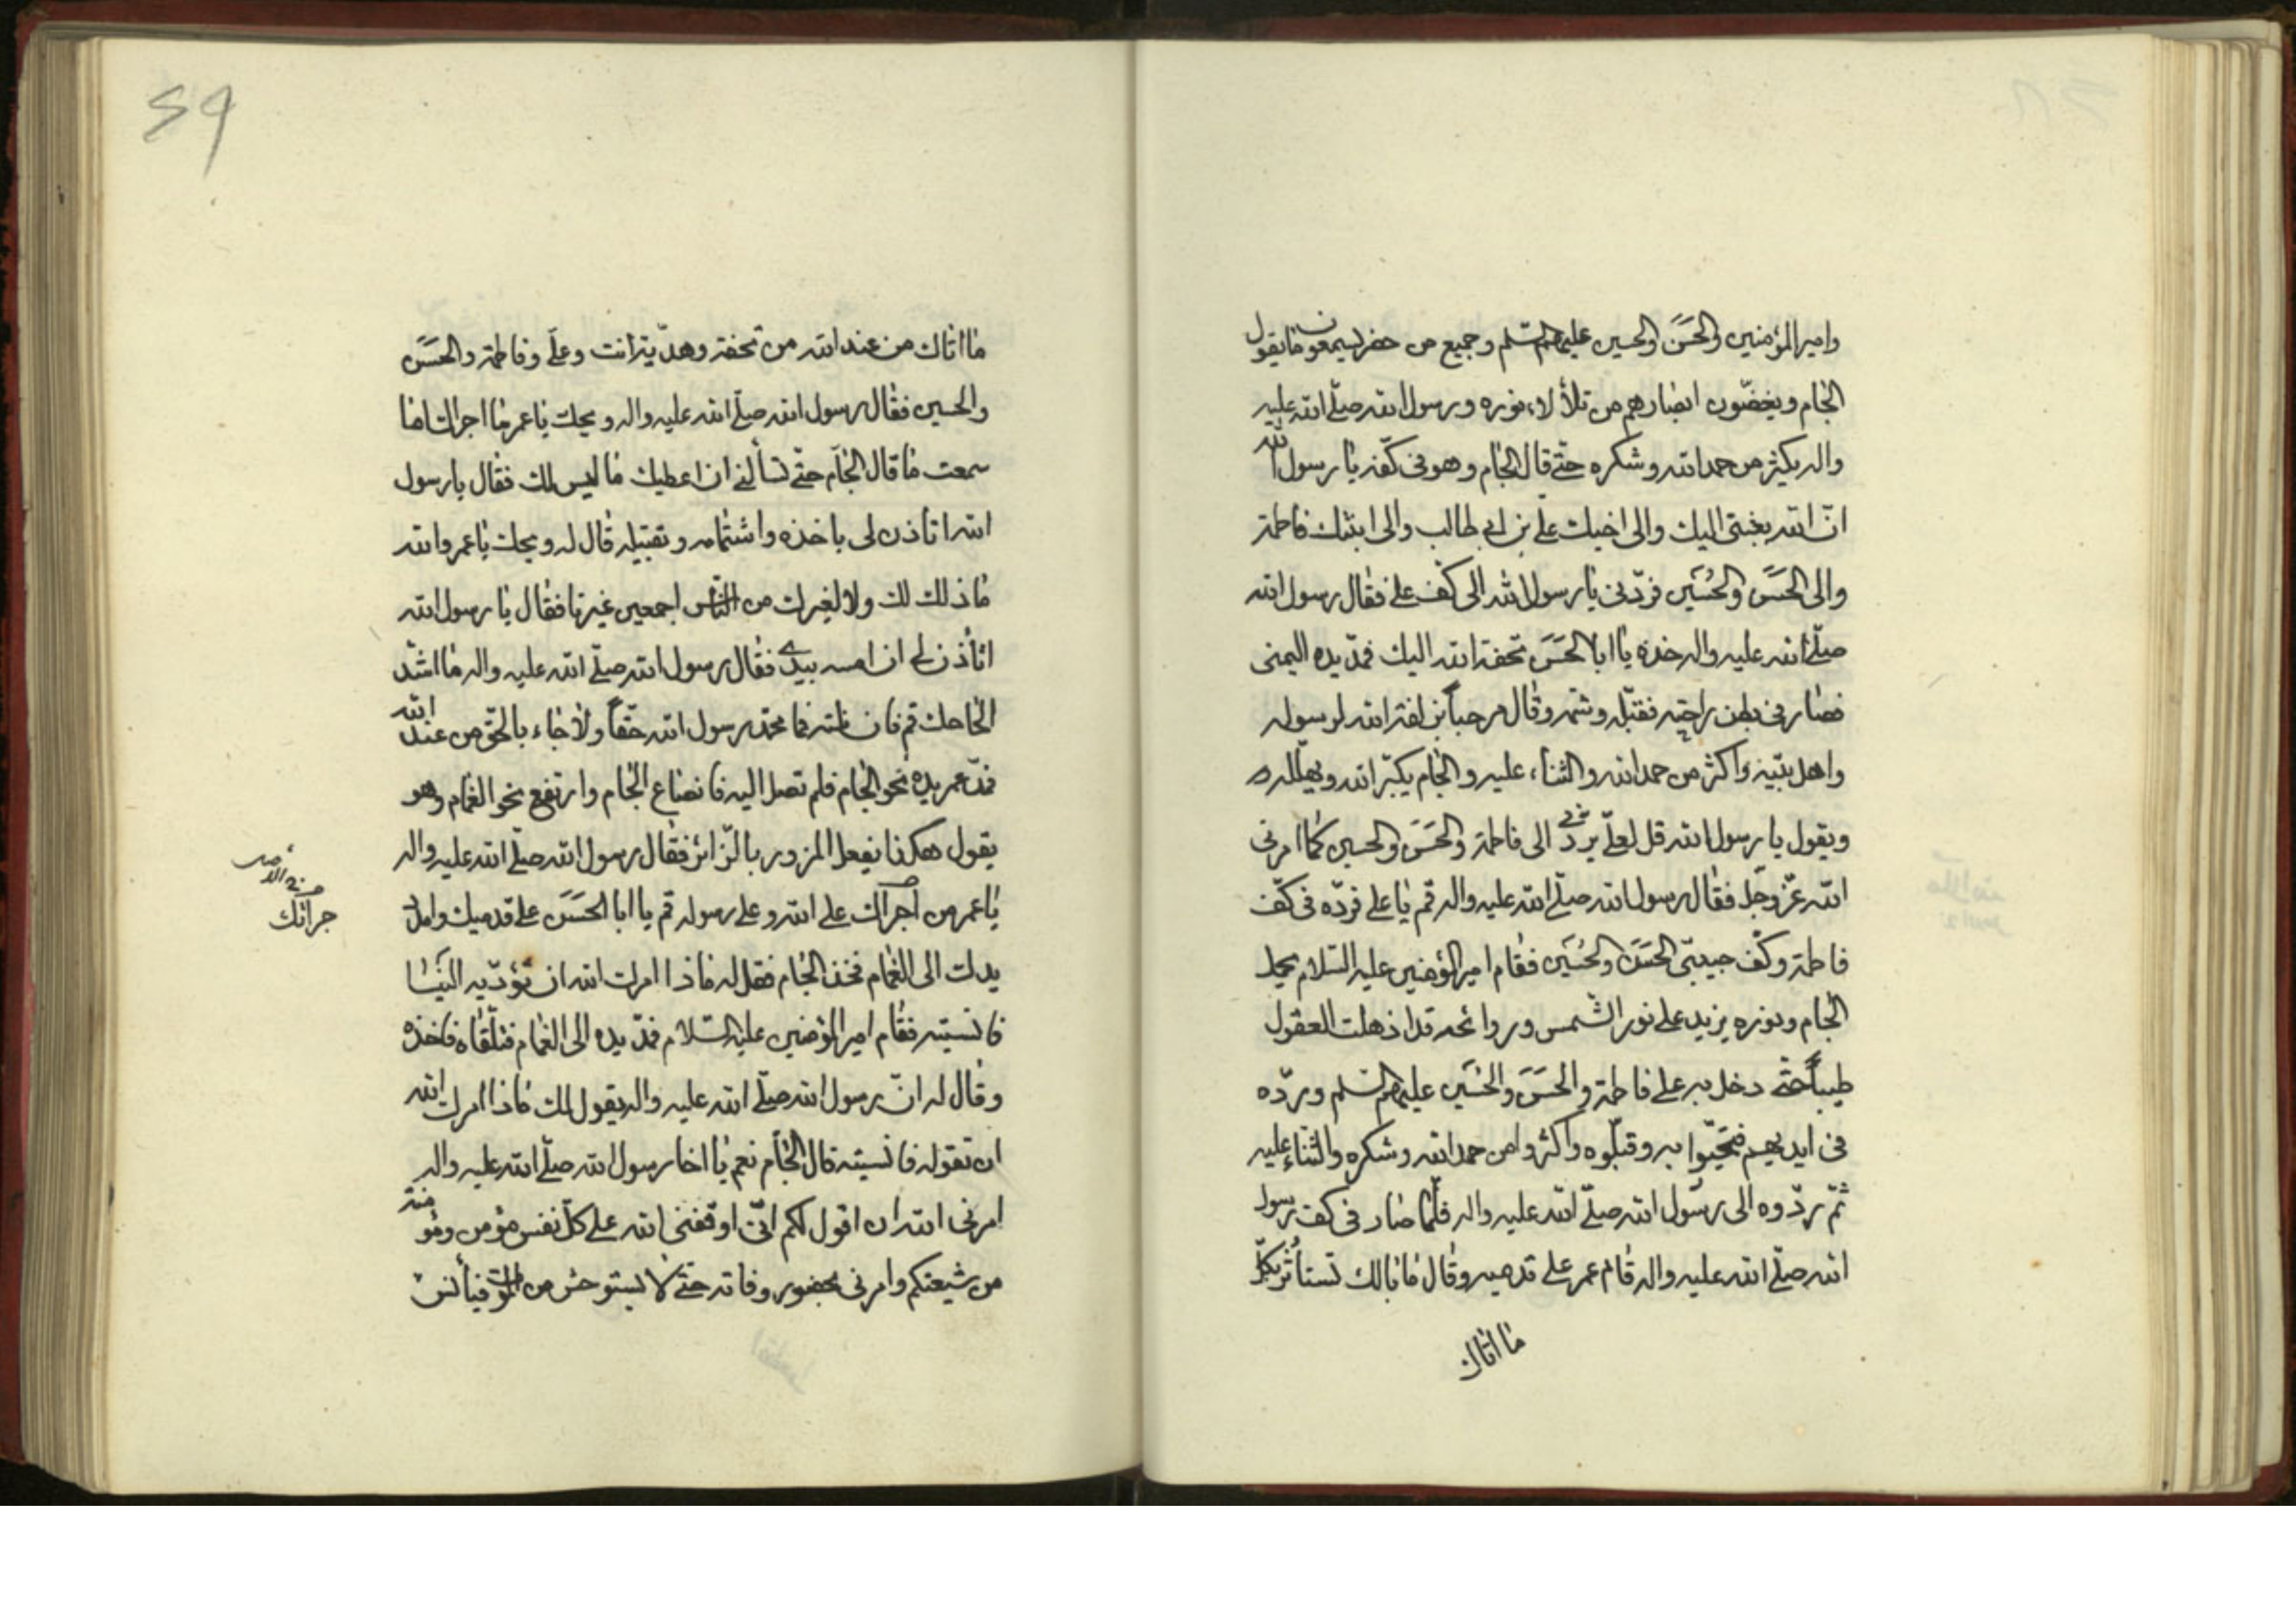 وامير المؤمنين والحَسَن والحسين عليهم السلم وجميع من حضر ليسمعون ما يقول
الجام ويغضّون ابصارهم من تلألاء نوره ورسول الله صلّى الله عليه
واله يكثر من حمد الله وشكره حتّى قال الجام وهو فى كفّه يا رسول الله
انّ الله بعثنى اليك والى اخيك علىّ بن ابى طالب والى ابنتك فاطمة
والى الحَسَن والحُسَين فردّنى يا رسول الله الى كفّ على فقال رسول الله
صلّى الله عليه واله خذه يا ابا الحَسَن تحفة الله اليك فمدّ يده اليمنى
فصار فى بطن راحته فقبّله وشمّه وقال مرحباً بزلفة الله لرسوله
واهل بيته واكثر من حمد الله والثناء عليه والجام يكبّر الله ويهلّله
ويقول يا رسول الله قل لعلىّ يردّنى الى فاطمة والحَسَن والحسين كما امرنى
الله عزّ وجلّ فقال رسول الله صلّى الله عليه واله قم يا على فردّه فى كفّ
فاطمة وكفّ حبيبىّ الحَسَن والحُسَين فقام امير المؤمنين عليه السّلام يحمل
الجام ونوره يزيد على نور الشمس وروائحه قد اذهلت العقول
طيباً حتّى دخل به على فاطمة والحَسَن والحُسَين عليهم السلم وردّه
فى ايديهم فتحيّوا به وقبّلوه واكثروا من حمد الله وشكره والثناء عليه
ثمّ ردّوه الى رسول الله صلّى الله عليه واله فلمّا صار فى كف رسول
الله صلّى الله عليه واله قام عمر على قدميه وقال ما بالك تستأثر بكلّ
ما اتاك
59
ما اتاك من عند الله من تحفة وهديّة انت وعلى وفاطمة والحَسَن
والحسين فقال رسول الله صلّى الله عليه واله ويحك يا عمر ما اجراك اما
سمعت ما قال الجام حتّى تسألنى ان اعطيك ما ليس لك فقال يا رسول
الله اتاذن لى باخذه واشتمامه وتقبيله قال له ويحك يا عمر والله
ما ذلك لك ولا لغيرك من النّاس اجمعين غيرنا فقال يا رسول الله
اتأذن لى ان امسه بيدى فقال رسول الله صلّى الله عليه واله ما اشدّ
الحاحك قم فان نلته فما محمّد رسول الله حقّاً ولا جاء بالحقّ من عند الله
فمدّ عمر يده نحو الجام فلم تصل اليه فانصاع الجام وارتفع نحو الغمام وهو
يقول هكذا يفعل المزور بالزّائر فقال رسول الله صلّى الله عليه واله
يا عمر من اجراك على الله وعلى رسوله قم يا ابا الحَسَن على قدميك وامدد
جراتك
يدك الى الغمام فخذ الجام فقل له ماذا امرك الله ان تؤدّيه الينا
فانسيته فقام امير المؤمنين عليه السّلام فمدّ يده الى الغمام فتلقاه فاخذه
وقال له انّ رسول الله صلّى الله عليه واله يقول لك ماذا امرك الله
ان تقوله فانسيته قال الجام نعم يا اخا رسول الله صلّى الله عليه واله
امرنى الله ان اقول لكم انّى اوقفنى الله على كلّ نفس مؤمن ومؤمنة
من شيعتكم وامرنى بحضور وفاته حتّى لا يستوحش من الموت فيأنس